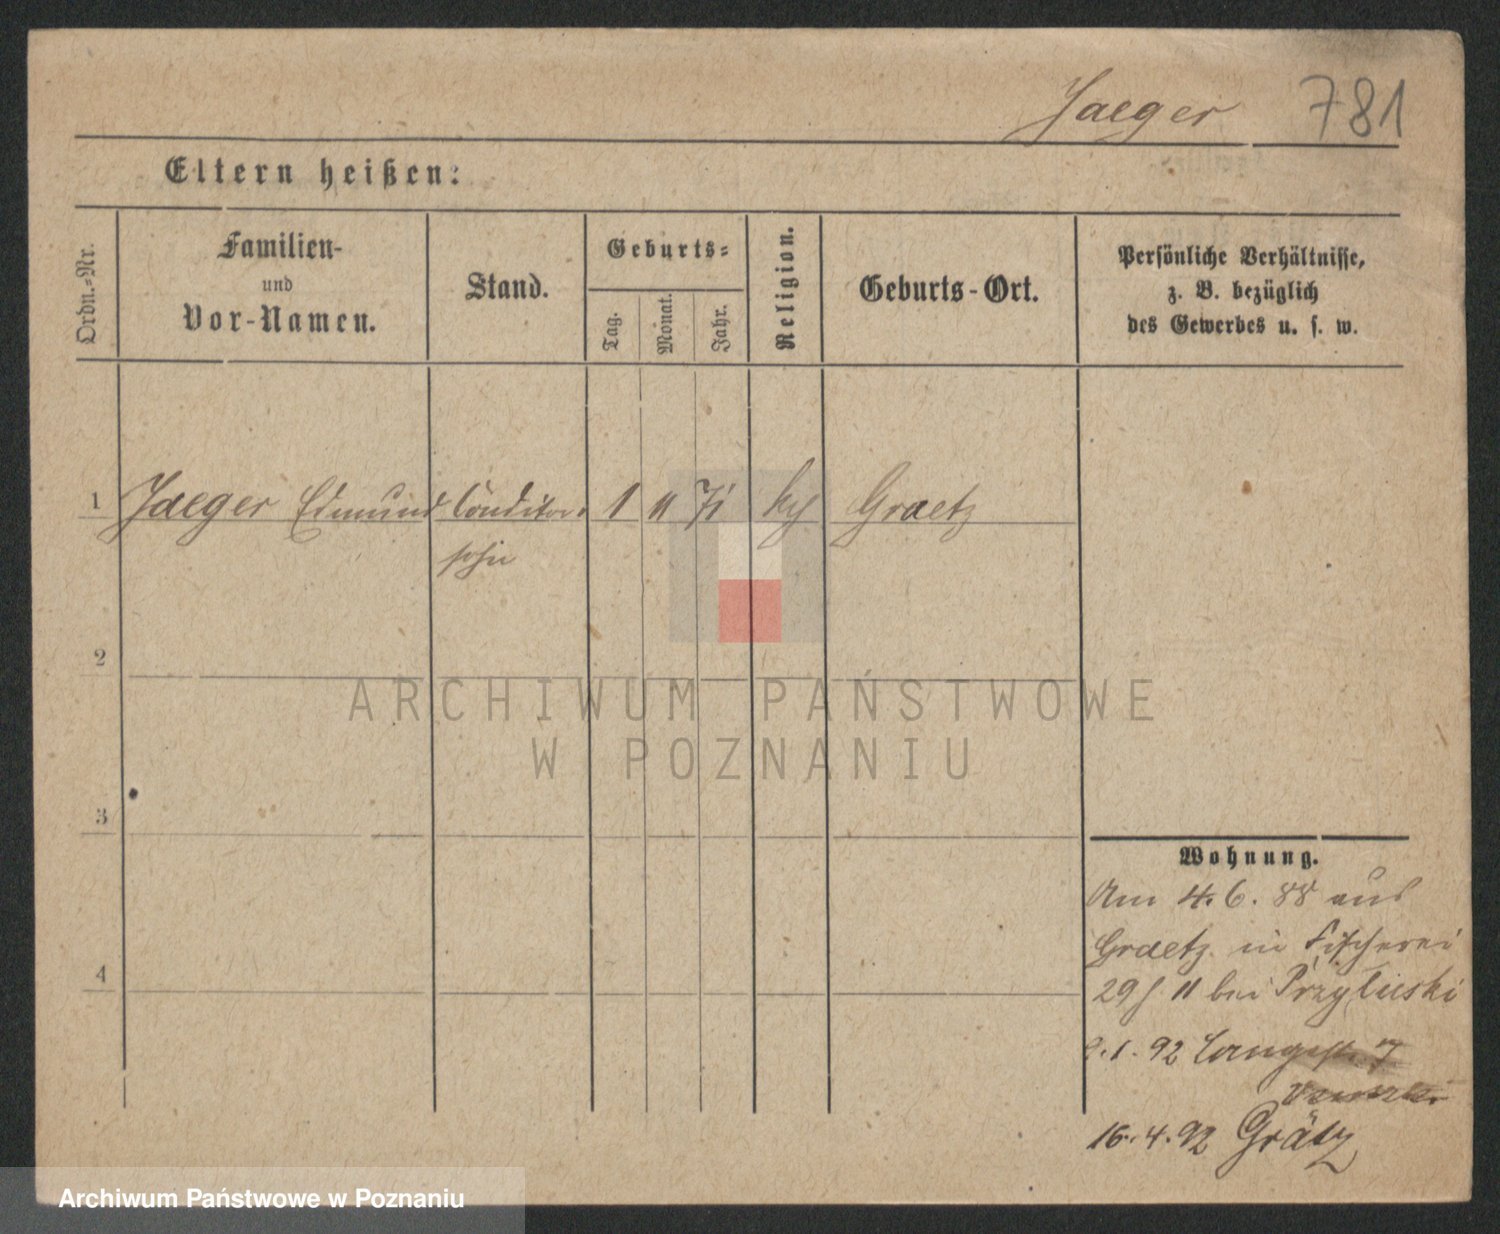 Jaeger 781
Eltern heißen:
Ordn.-Nr.
Familien-
und
Vor-Namen.
Stand.
Geburts-
Tag.
Monat.
Jahr.
Religion.
Geburts-Ort.
Persönliche Verhältnisse,
z. B. bezüglich
des Gewerbes u. s. w.
1 Jaeger Edmund Conditor- 1 11 71 Graetz
sohn
2
ARCHIWUM PAŃSTWOWE
W POZNANIU
3
4
Wohnung.
Am 4.6.88 aus
Graetz in Fischerei
29 II bei Przyluski
1.92 Langestr. 7
16.4.92 Grätz
Archiwum Państwowe w Poznaniu